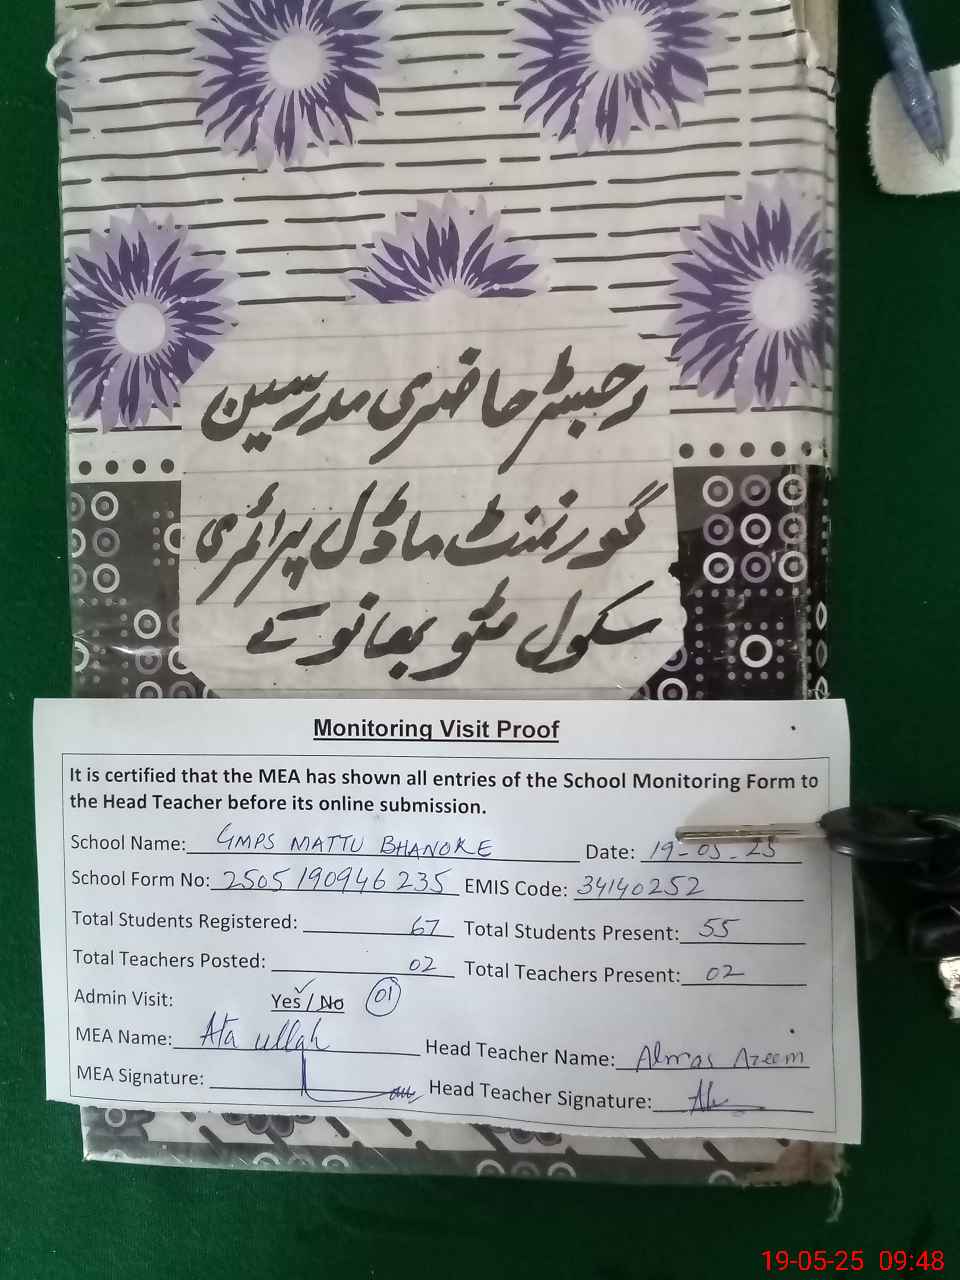 رجسٹر حاضری مدرسین
گورنمنٹ ماڈل پرائمری
سکول مٹو بھانوکے
Monitoring Visit Proof
It is certified that the MEA has shown all entries of the School Monitoring Form to
the Head Teacher before its online submission.
School Name: GMPS MATTU BHANOKE Date: 19-05-25
School Form No: 2505190946235 EMIS Code: 34140252
Total Students Registered: 67 Total Students Present: 55
Total Teachers Posted: 02 Total Teachers Present: 02
Admin Visit: Yes / No 01
MEA Name: Ata ullah Head Teacher Name: Almas Azeem
MEA Signature: Head Teacher Signature:
19-05-25 09:48